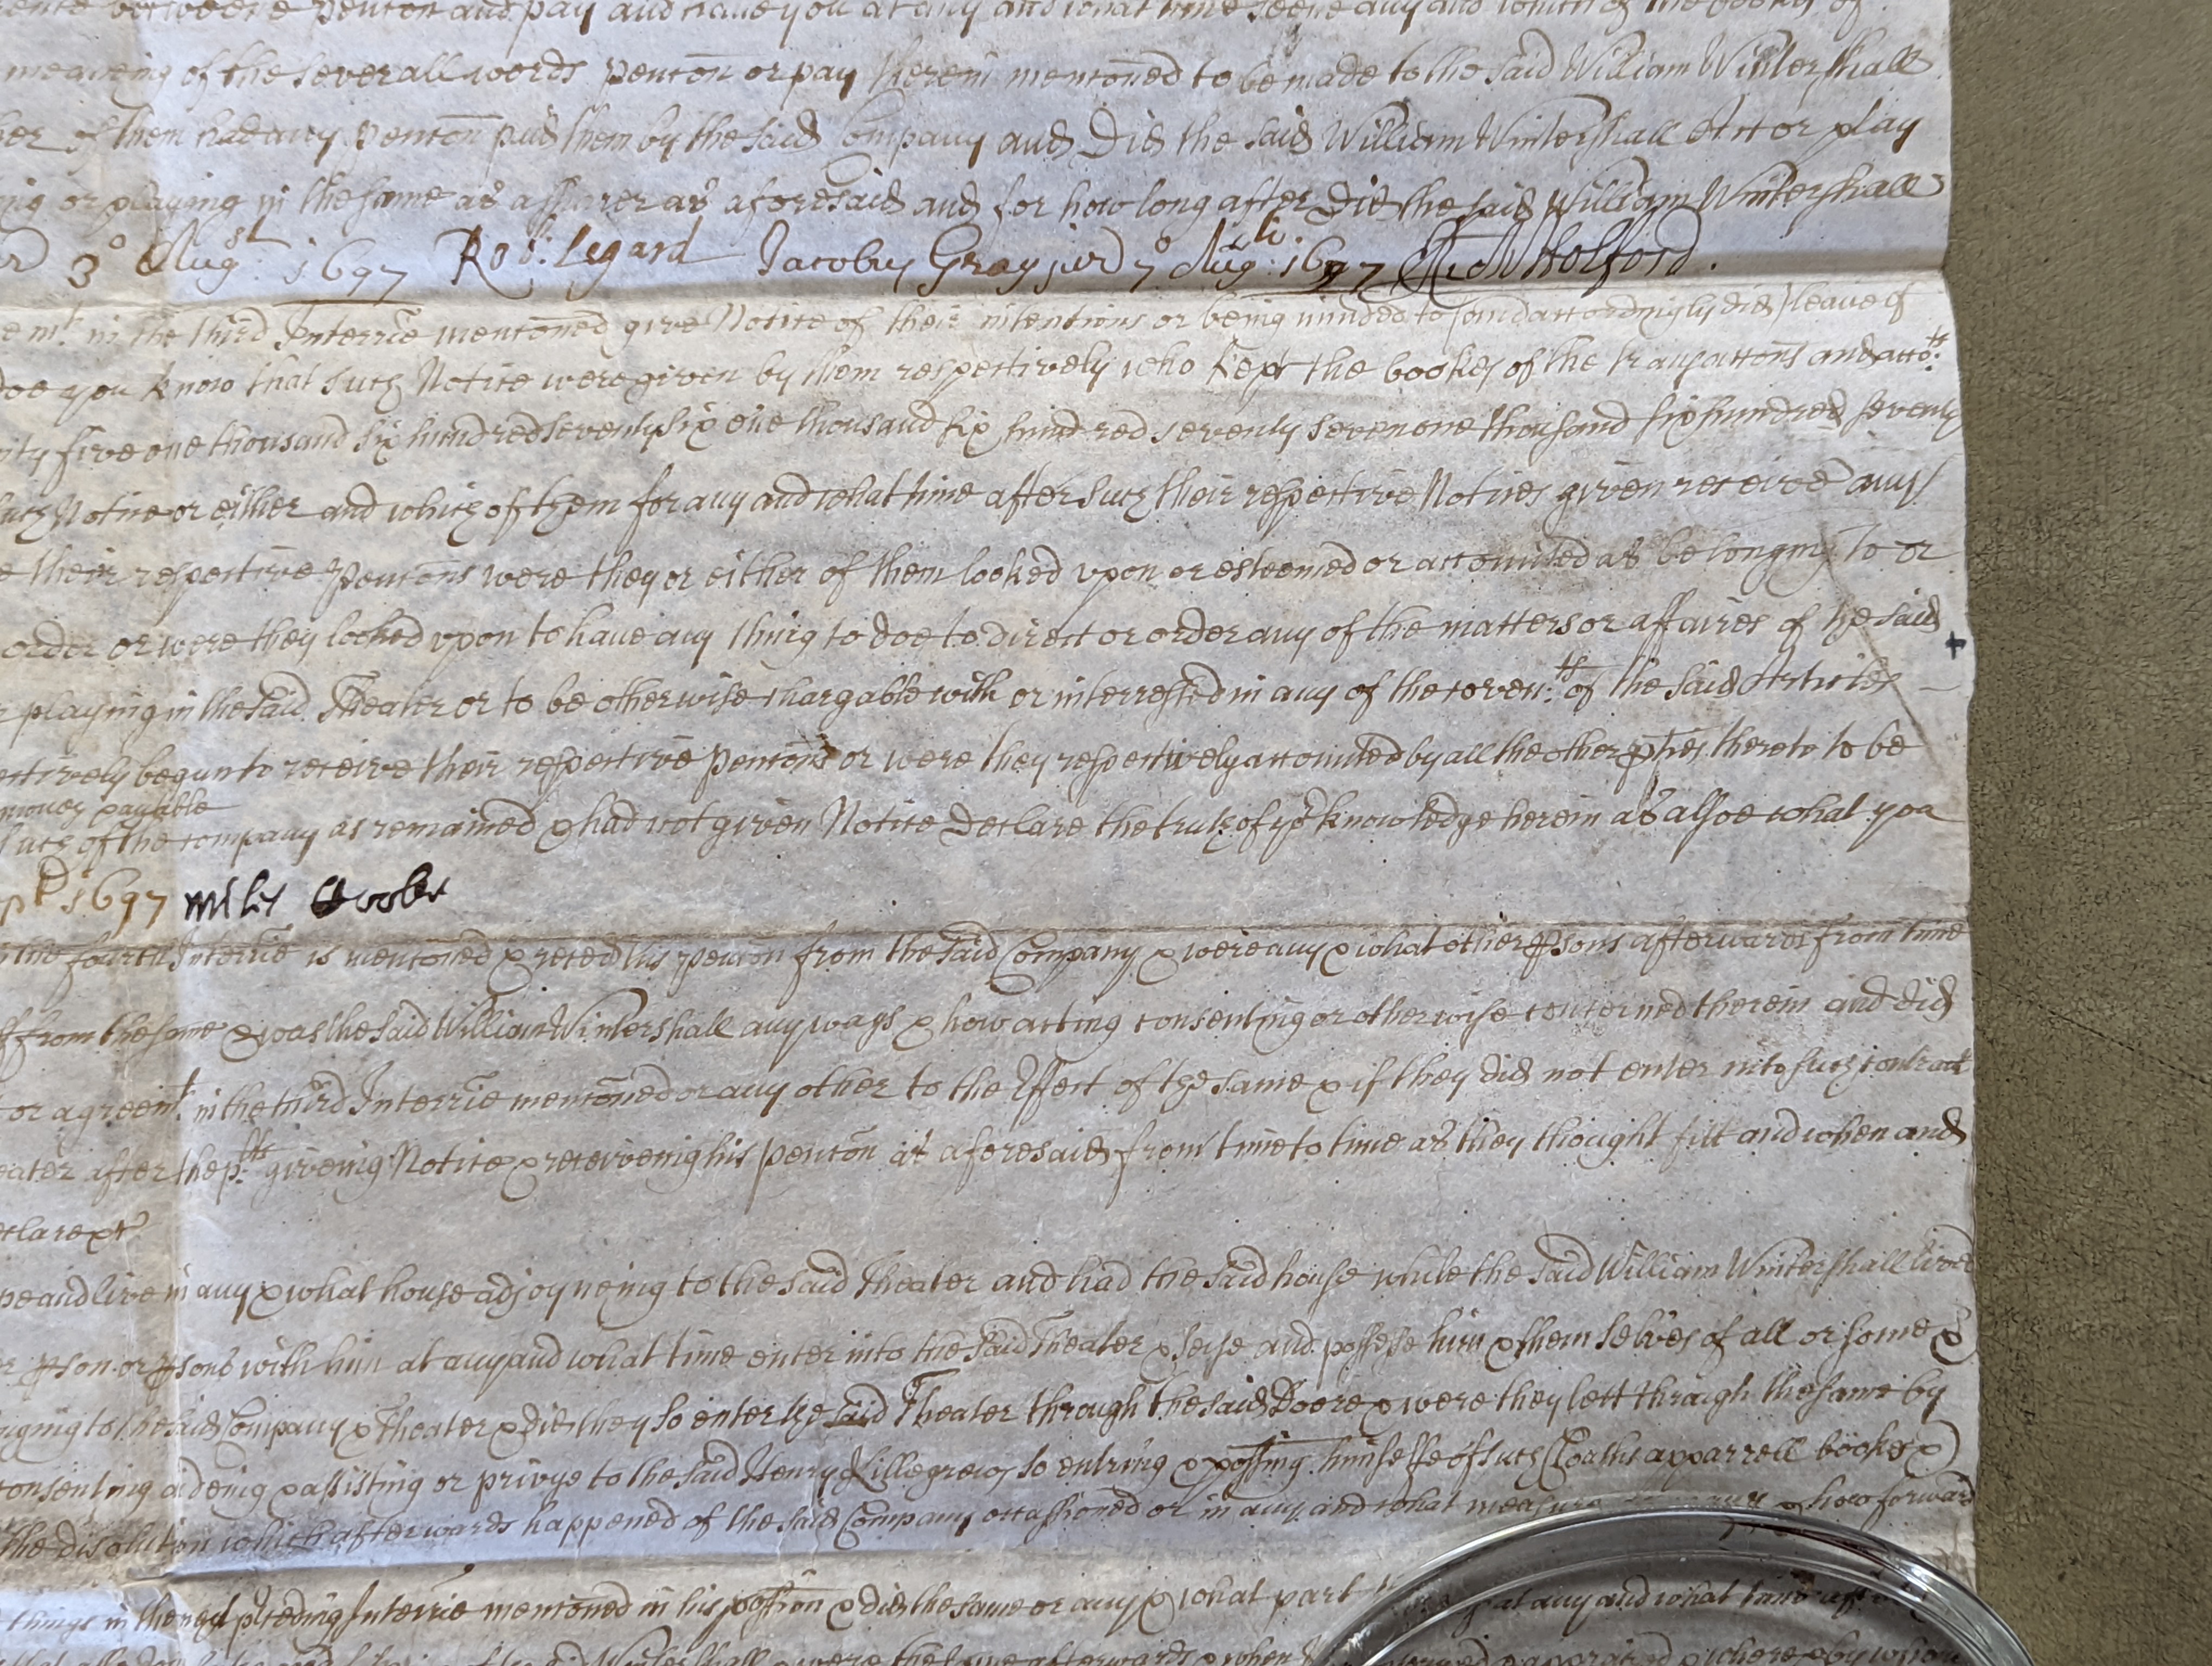 penton and pay and have you at any and what time seene any and which of the bookes of
meaneing of the severall words penton or pay therein mentoned to be made to the said William Wintershall
of them had any penton paid them by the said Company and Did the said William Wintershall Act or play
or playing in the same as a sharer as aforesaid and for how long after Did the said William Wintershall
3° Augst 1697 Rob: Legard Jacobus Gray jur 7° Augti 1697 R Holford.
in the third Interrie mentoned give Notice of their intentions or being minded to (and accordingly did) leave of
doe you know that such Notice were given by them respectively who kept the bookes of the transactons and accots
five one thousand six hundred seventy six one thousand six hundred seventy seven one thousand six hundred seventy
such Notice or either and which of them for any and what time after such their respective Notices given receive any
their respective pentons were they or either of them looked upon or esteemed or accounted as belonging to or
order or were they looked vpon to have any thing to doe to direct or order any of the matters or affaires of the said
playing in the said Theater or to be otherwise chargable with or interrested in any of the covents of the said Articles
begun to receive their respective pentons or were they respectively accounted by all the other pties thereto to be
money payable
such of the company as remained & had not given Notice Declare the truth of yor knowledge herein as alsoe what you
1697 Miles Cooke
the fourth Interrie is mentoned & reced his penton from the said Company & were any & what other psons afterwards from time
from the same & was the said William Wintershall any ways & how acting consenting or otherwise concerned therein and did
or agreemt in the third Interrie mentoned or any other to the Effect of the same & if they did not enter into such contract
after the pts giveing Notice & receiveing his penton as aforesaid from time to time as they thought fitt and when and
declare &c
and live in any & what house adjoyneing to the said Theater and had the said house while the said William Wintershall lived
pson or psons with him at any and what time enter into the said Theater & seise and possesse him & themselves of all or some &
to the said Company & Theater & did they so enter the said Theater through the said Doore & were they lett through the same by
consenting aideing & assisting or privye to the said Henry Killegrew so entring & possing himselfe of such Cloaths apparrell bookes &
the disolution which afterwards happened of the said Company occassioned or in any and what measure & how forward
things in the next pceding Interrie mentoned in his possion & did the same or any & what part at any and what time
Wintershall & were the same afterwards & when & where & by whom